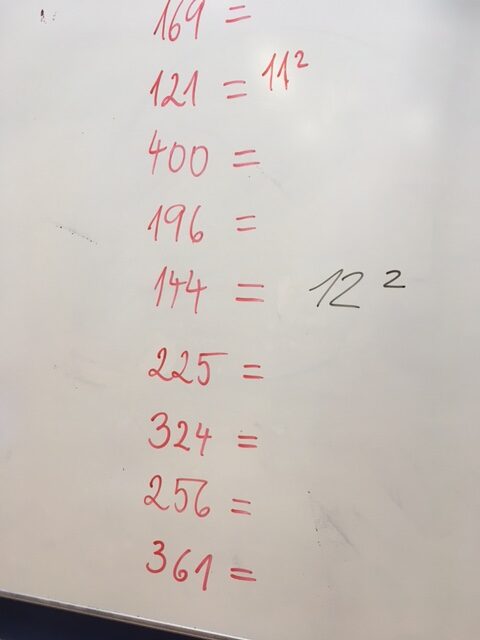 169 =
121 = 11²
400 =
196 =
144 = 12²
225 =
324 =
256 =
361 =